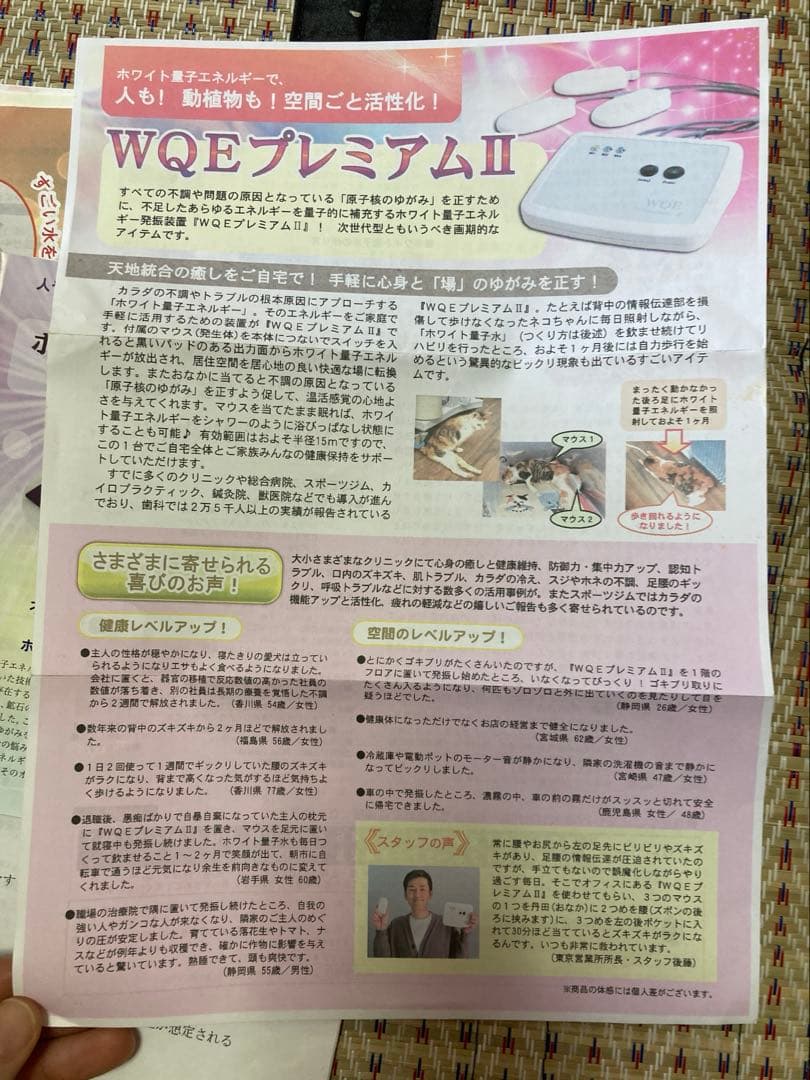 ホワイト量子エネルギーで、
人も! 動植物も!空間ごと活性化!
WQEプレミアムⅡ
すべての不調や問題の原因となっている「原子核のゆがみ」を正すため
に、不足したあらゆるエネルギーを量子的に補充するホワイト量子エネル
ギー発振装置『WQEプレミアムⅡ』! 次世代型ともいうべき画期的な
アイテムです。
WQE
天地統合の癒しをご自宅で! 手軽に心身と「場」のゆがみを正す!
カラダの不調やトラブルの根本原因にアプローチする
「ホワイト量子エネルギー」。そのエネルギーをご家庭で
手軽に活用するための装置が『WQEプレミアムⅡ』で
す。付属のマウス(発生体)を本体につないでスイッチを入
れると黒いパッドのある出力面からホワイト量子エネル
ギーが放出され、居住空間を居心地の良い快適な場に転換
します。またおなかに当てると不調の原因となっている
「原子核のゆがみ」を正すよう促して、温活感覚の心地よ
さを与えてくれます。マウスを当てたまま眠れば、ホワイ
ト量子エネルギーをシャワーのように浴びっぱなし状態に
することも可能♪ 有効範囲はおよそ半径15mですので、
この1台でご自宅全体とご家族みんなの健康保持をサポー
トしていただけます。
すでに多くのクリニックや総合病院、スポーツジム、カ
イロプラクティック、鍼灸院、獣医院などでも導入が進ん
でおり、歯科では2万5千人以上の実績が報告されている
『WQEプレミアムⅡ』。たとえば背中の情報伝達部を損
傷して歩けなくなったネコちゃんに毎日照射しながら、
「ホワイト量子水」(つくり方は後述)を飲ませ続けてリ
ハビリを行ったところ、およそ1ヶ月後には自力歩行を始
めるという驚異的なビックリ現象も出ているすごいアイテ
ムです。
まったく動かなかっ
た後ろ足にホワイト
量子エネルギーを照
射しておよそ1ヶ月
マウス1
マウス2
歩き回れるように
なりました!
さまざまに寄せられる
喜びのお声!
大小さまざまなクリニックにて心身の癒しと健康維持、防御力・集中力アップ、認知ト
ラブル、口内のズキズキ、肌トラブル、カラダの冷え、スジやホネの不調、足腰のギッ
クリ、呼吸トラブルなどに対する数多くの活用事例が。またスポーツジムではカラダの
機能アップと活性化、疲れの軽減などの嬉しいご報告も多く寄せられているのです。
健康レベルアップ!
●主人の性格が穏やかになり、寝たきりの愛犬は立ってい
られるようになりエサもよく食べるようになりました。
会社に置くと、器官の移植で反応数値の高かった社員の
数値が落ち着き、別の社員は長期の療養を覚悟した不調
から2週間で解放されました。(香川県 54歳/女性)
●数年来の背中のズキズキから2ヶ月ほどで解放されまし
た。 (福島県 56歳/女性)
●1日2回使って1週間でギックリしていた腰のズキズキ
がラクになり、背まで高くなった気がするほど気持ちよ
く歩けるようになりました。 (香川県 77歳/女性)
●退職後、愚痴ばかりで自暴自棄になっていた主人の枕元
に『WQEプレミアムⅡ』を置き、マウスを足元に置い
て就寝中も発振し続けました。ホワイト量子水も毎日つ
くって飲ませること1〜2ヶ月で笑顔が出て、朝市に自
転車で通うほど元気になり余生を前向きなものに変えて
くれました。 (岩手県 女性 60歳)
●職場の治療院で隅に置いて発振し続けたところ、自我の
強い人やガンコな人が来なくなり、隣家のご主人のめぐ
りの圧が安定しました。育てている落花生やトマト、ナ
スなどが例年よりも収穫でき、確かに作物に影響を与え
ていると驚いています。熟睡できて、頭も爽快です。
(静岡県 55歳/男性)
空間のレベルアップ!
●とにかくゴキブリがたくさんいたのですが、『WQEプレミアムⅡ』を1階の
フロアに置いて発振し始めたところ、いなくなってびっくり!ゴキブリ取りに
たくさん入るようになり、何匹もゾロゾロと外に出ていくのを見たりして目を
疑うほどでした。 (静岡県 26歳/女性)
●健康体になっただけでなくお店の経営まで健全になりました。
(宮城県 62歳/女性)
●冷蔵庫や電動ポットのモーター音が静かになり、隣家の洗濯機の音まで静かに
なってビックリしました。 (宮崎県 47歳/女性)
●車の中で発振したところ、濃霧の中、車の前の霧だけがスッスッと切れて安全
に帰宅できました。 (鹿児島県 女性/ 48歳)
スタッフの声
常に腰やお尻から左の足先にビリビリやズキズ
キがあり、足腰の情報伝達が圧迫されていたの
ですが、手立てもないので誤魔化しながらやり
過ごす毎日。そこでオフィスにある『WQEプ
レミアムⅡ』を使わせてもらい、3つのマウス
の1つを丹田(おなか)に2つめを腰(ズボンの後
ろに挟みます)に、3つめを左の後ポケットに入
れて30分ほど当てているとズキズキがラクにな
るんです。いつも非常に救われています。
(東京営業所所長・スタッフ後藤)
※商品の体感には個人差がございます。
すごい水を
が想定される